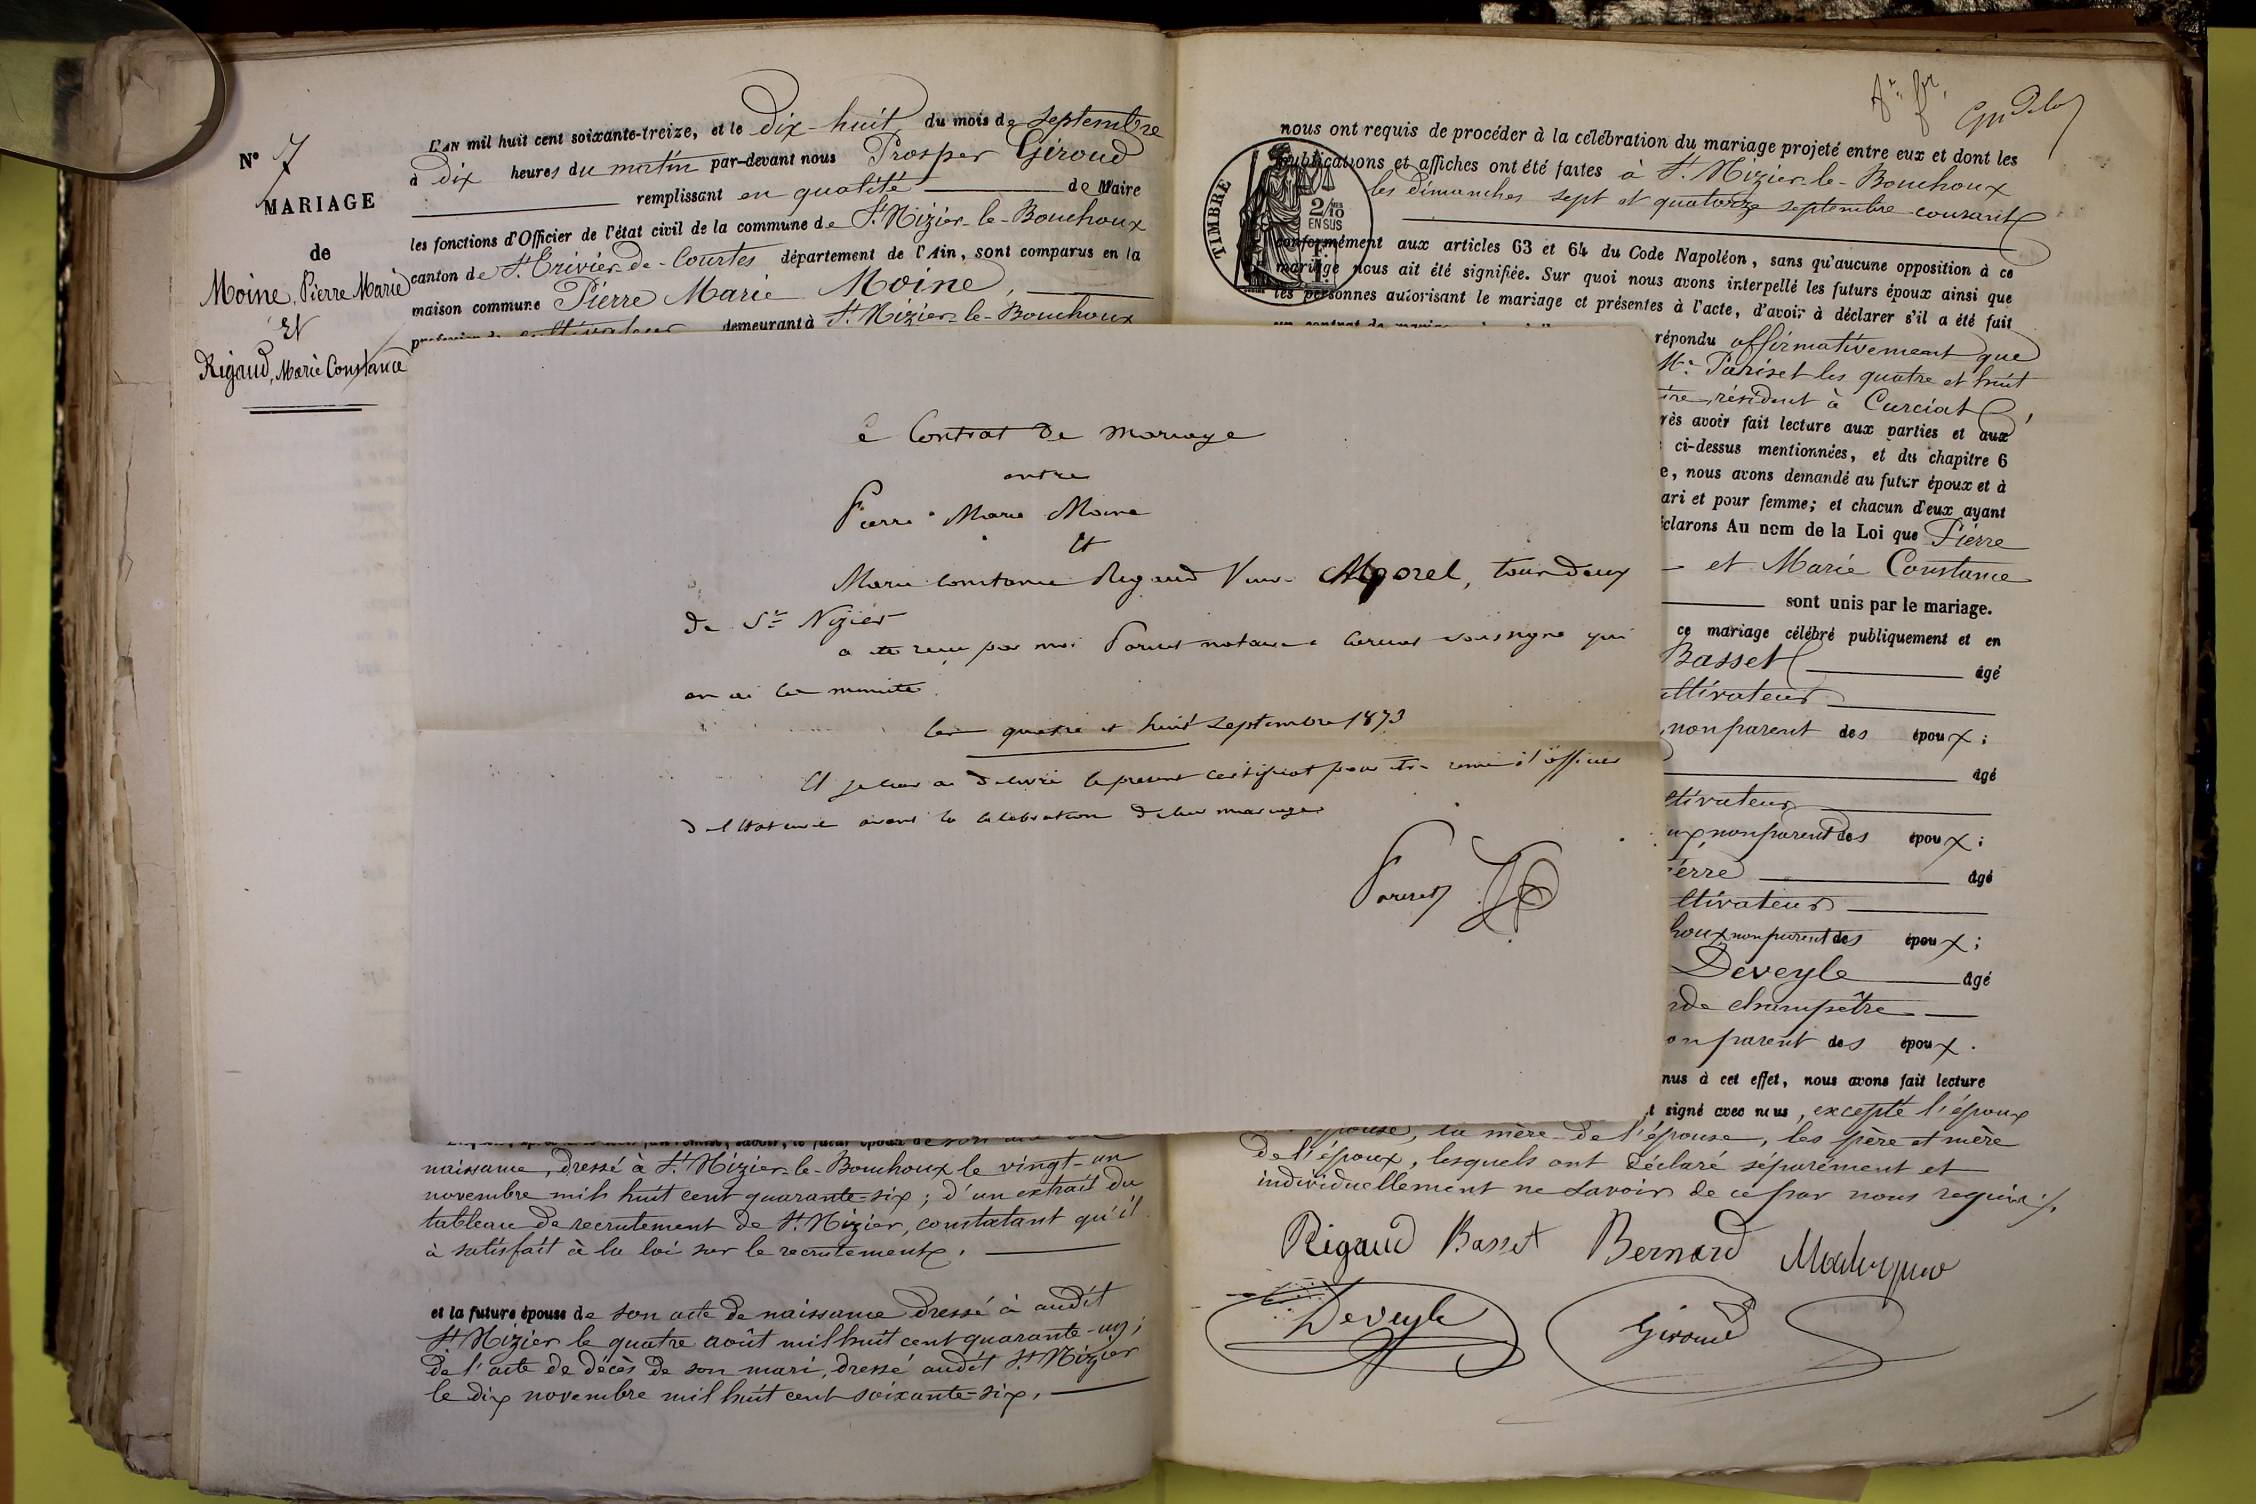 N° 7
MARIAGE
de
Moine, Pierre Marie
Et
Rigaud, Marie Constance
L'AN mil huit cent soixante-treize, et le dix-huit du mois de septembre
à dix heures du matin par-devant nous Prosper Giroud
remplissant en qualité de Maire
les fonctions d'Officier de l'état civil de la commune de St Nizier-le-Bouchoux
canton de St Trivier-de-Courtes département de l'Ain, sont comparus en la
maison commune Pierre Marie Moine,
profession de cultivateur demeurant à St Nizier-le-Bouchoux
le Contrat de mariage
entre
Pierre Marie Moine
Et
Marie Constance Rigaud Vve Morel, tous deux
de St Nizier
a été reçu par moi Pariset notaire à Curciat soussigné qui
en ai la minute
les quatre et huit septembre 1873
Et je leur ai délivré le présent certificat pour être remis à l'officier
de l'état civil avant la célébration de leur mariage
Pariset
naissance, dressé à St Nizier-le-Bouchoux le vingt-un
novembre mil huit cent quarante-six; d'un extrait du
tableau de recrutement de St Nizier, constatant qu'il
à satisfait à la loi sur le recrutement.
et la future épouse de son acte de naissance dressé à audit
St Nizier le quatre août mil huit cent quarante-un;
de l'acte de décès de son mari, dressé audit St Nizier
le dix novembre mil huit cent soixante-six.
nous ont requis de procéder à la célébration du mariage projeté entre eux et dont les
publications et affiches ont été faites à St Nizier-le-Bouchoux
les dimanches sept et quatorze septembre courant
TIMBRE
2/10
EN SUS
conformément aux articles 63 et 64 du Code Napoléon, sans qu'aucune opposition à ce
mariage nous ait été signifiée. Sur quoi nous avons interpellé les futurs époux ainsi que
les personnes autorisant le mariage et présentes à l'acte, d'avoir à déclarer s'il a été fait
un contrat de mariage
répondu affirmativement que
Me Pariset les quatre et huit
résidant à Curciat,
rès avoir fait lecture aux parties et aux
ci-dessus mentionnées, et du chapitre 6
e, nous avons demandé au futur époux et à
ari et pour femme; et chacun d'eux ayant
éclarons Au nom de la Loi que Pierre
et Marie Constance
sont unis par le mariage.
ce mariage célébré publiquement et en
Basset âgé
ultivateur
non parent des époux;
âgé
ltivateur
ux, non parent des époux;
ierre âgé
ltivateur
houx, non parent des époux;
Deveyle âgé
rde champêtre
on parent des époux.
nus à cet effet, nous avons fait lecture
t signé avec nous, excepté l'époux
épouse, la mère de l'épouse, les père et mère
de l'époux, lesquels ont déclaré séparément et
individuellement ne savoir de ce par nous requis.
Rigaud Basset Bernard
Deveyle Giroud